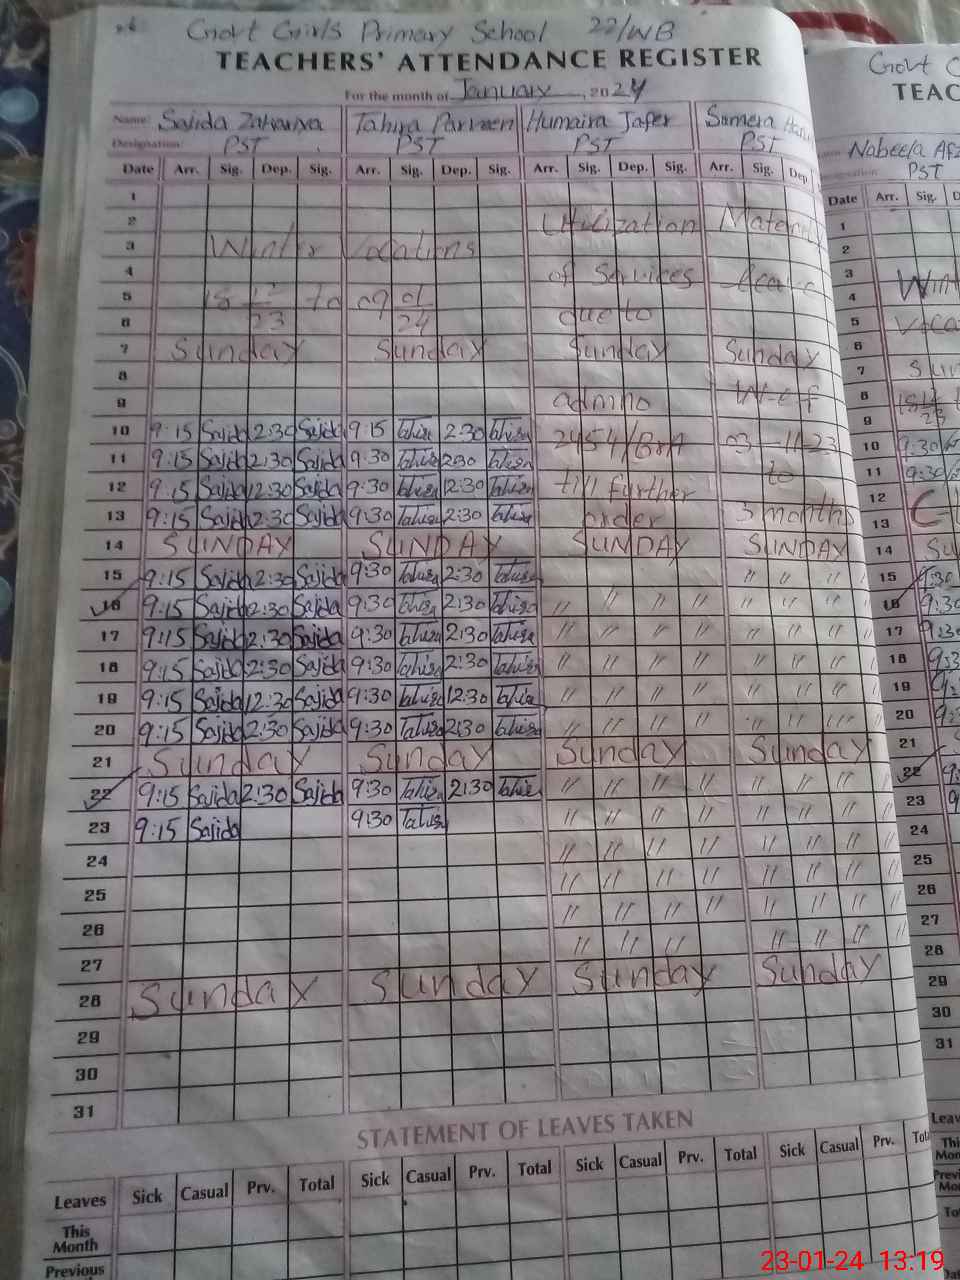 Govt Girls Primary School 22/WB
TEACHERS' ATTENDANCE REGISTER
For the month of January, 2024
Name: Sajida Zakariya Tahira Parveen Humaira Jafer Sumera
Designation: PST PST PST PST
Date Arr. Sig. Dep. Sig. Arr. Sig. Dep. Sig. Arr. Sig. Dep. Sig. Arr. Sig. Dep
1
2 Utilization Maternity
3 Winter Vacations
4 of Services leave
5 18 12/23 to 09 01/24
6 due to
7 Sunday Sunday Sunday Sunday
8 W-e-f
9 admno
10 9:15 Sajida 2:30 Sajida 9:15 Tahira 2:30 Tahira 2454/BrA 03-11-23
11 9:15 Sajida 2:30 Sajida 9:30 Tahira 2:30 Tahira to
12 9:15 Sajida 2:30 Sajida 9:30 Tahira 2:30 Tahira till further
13 9:15 Sajida 2:30 Sajida 9:30 Tahira 2:30 Tahira order 3 months
14 SUNDAY SUNDAY SUNDAY SUNDAY
15 9:15 Sajida 2:30 Sajida 9:30 Tahira 2:30 Tahira " " " "
16 9:15 Sajida 2:30 Sajida 9:30 Tahira 2:30 Tahira " " " " " " " "
17 9:15 Sajida 2:30 Sajida 9:30 Tahira 2:30 Tahira " " " " " " " "
18 9:15 Sajida 2:30 Sajida 9:30 Tahira 2:30 Tahira " " " " " " " "
19 9:15 Sajida 2:30 Sajida 9:30 Tahira 2:30 Tahira " " " " " " " "
20 9:15 Sajida 2:30 Sajida 9:30 Tahira 2:30 Tahira " " " " " " " "
21 Sunday Sunday Sunday Sunday
22 9:15 Sajida 2:30 Sajida 9:30 Tahira 2:30 Tahira " " " " " " " "
23 9:15 Sajida 9:30 Tahira " " " " " " " "
24 " " " " " " " "
25 " " " " " " " "
26 " " " " " " " "
27 " " " " " " "
28 Sunday Sunday Sunday Sunday
29
30
31
STATEMENT OF LEAVES TAKEN
Leaves Sick Casual Prv. Total Sick Casual Prv. Total Sick Casual Prv. Total Sick Casual Prv. Total
This Month
Previous
Govt
TEAC
Nabeela
PST
Date Arr. Sig. D
1
2
3
4
5
6
7
8
9
10 9:30
11 9:30
12
13
14
15 9:30
16 9:30
17
18
19
20
21
22
23
24
25
26
27
28
29
30
31
23-01-24 13:19